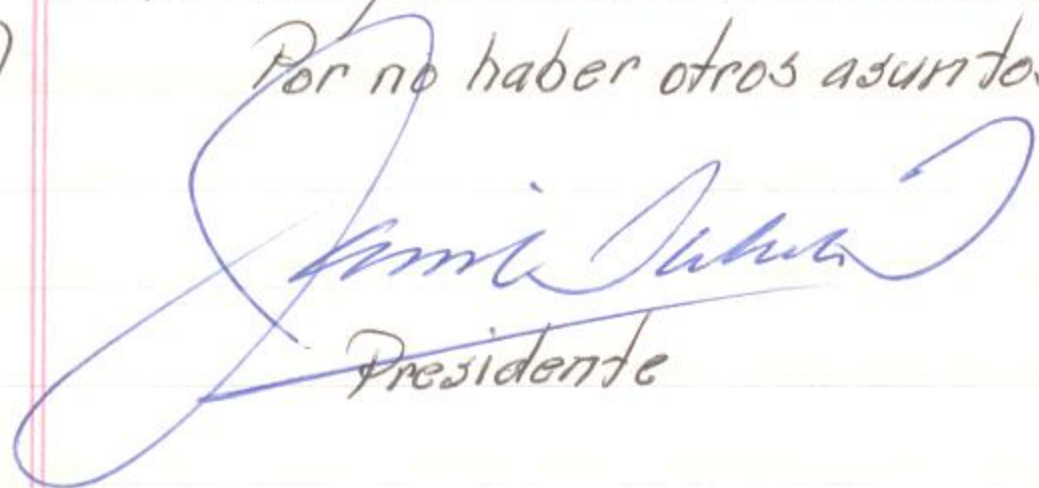 Por no haber otros asuntos
Presidente